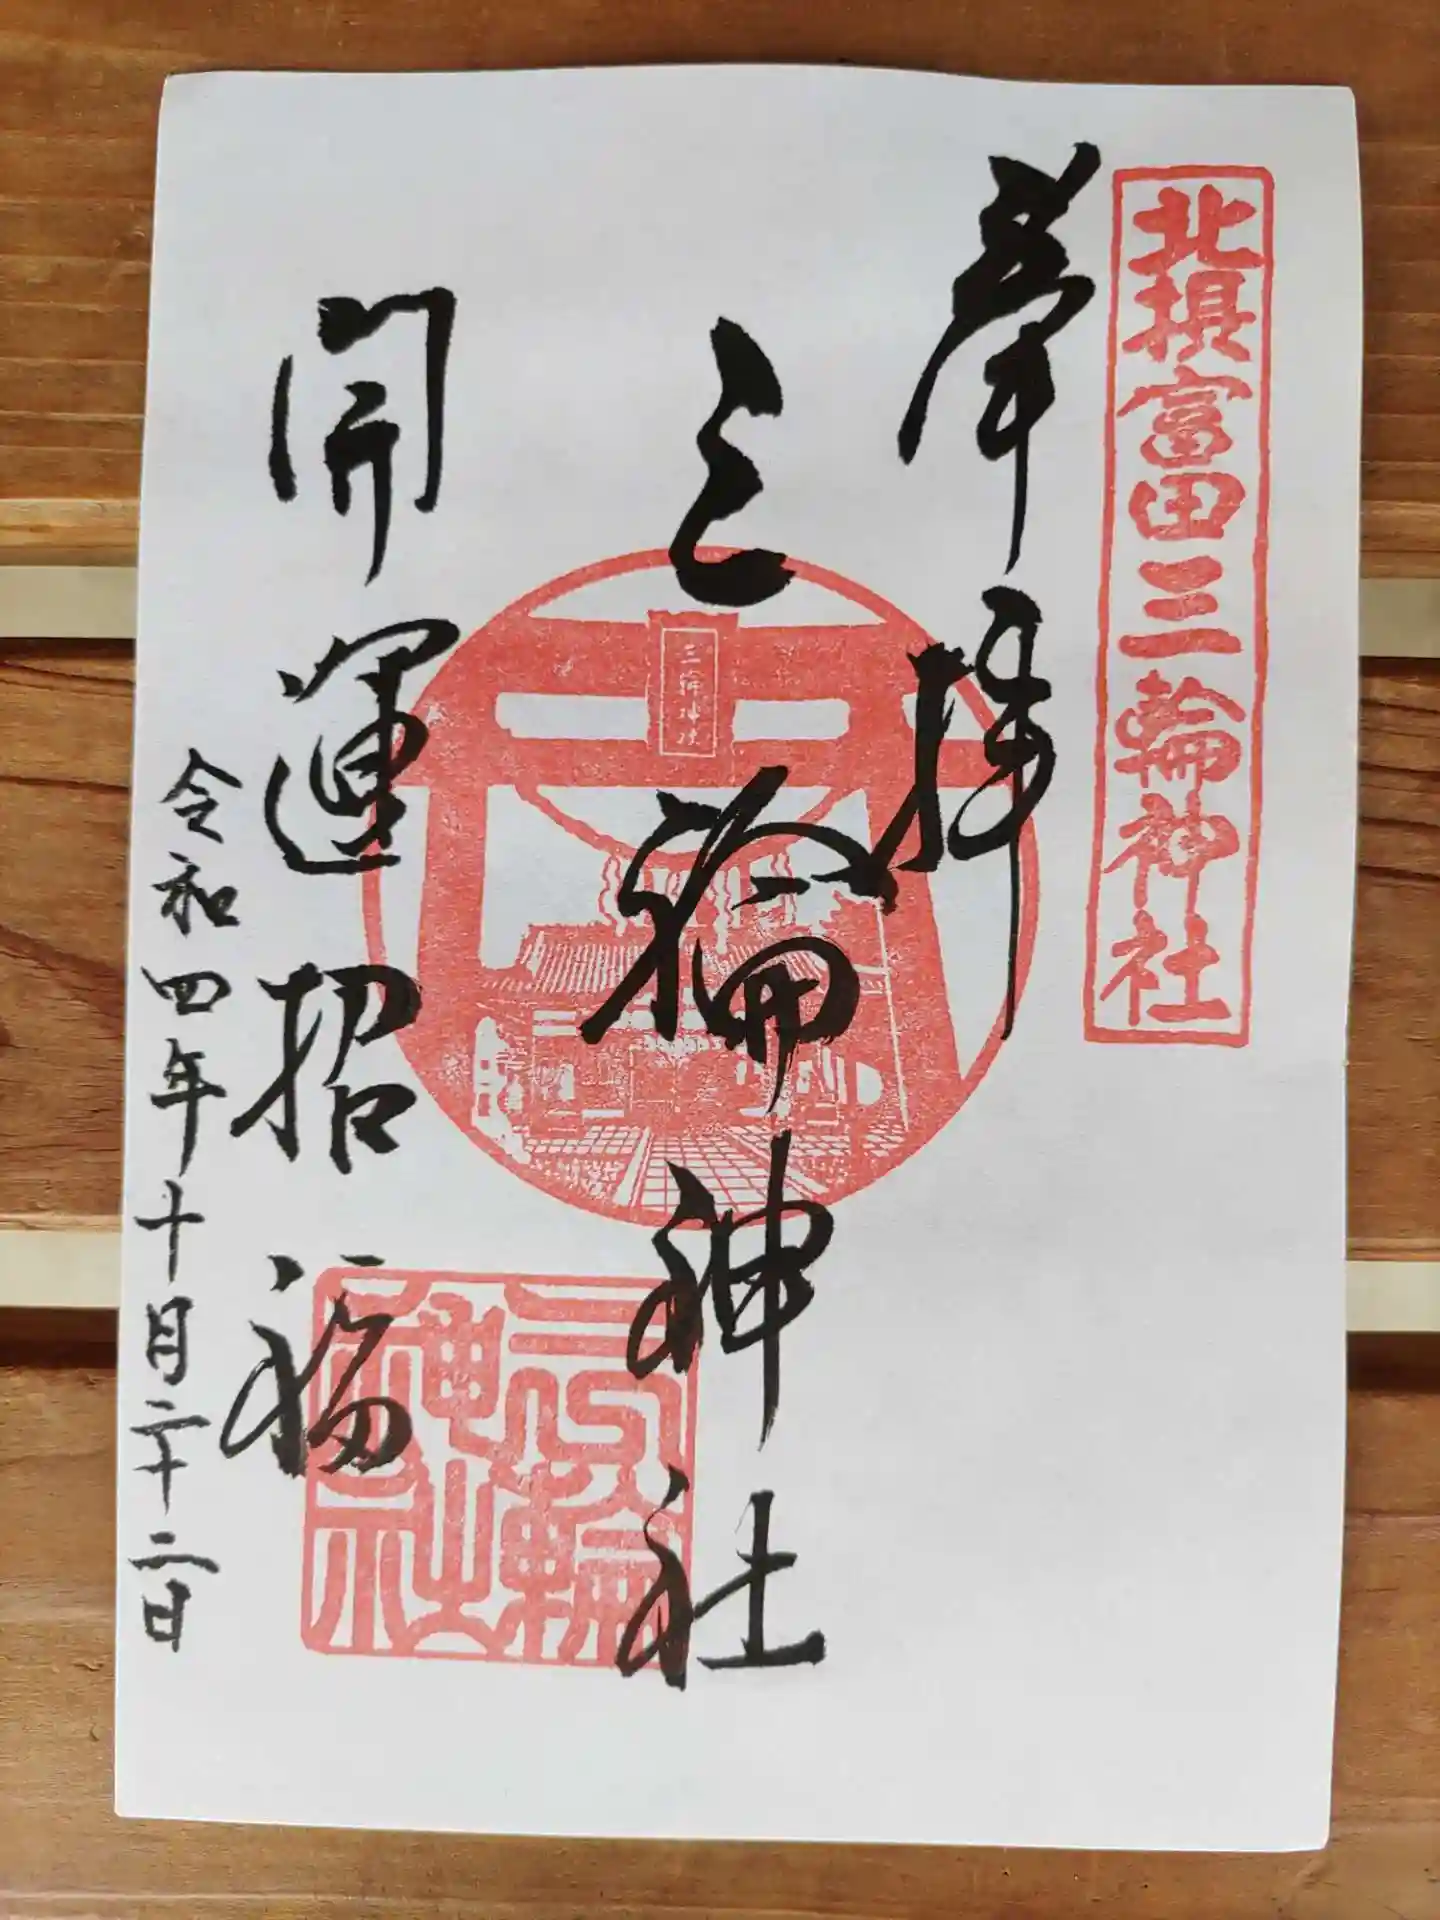 北摂富田三輪神社
奉拝
三輪神社
三輪神社
三輪神社
開運招福
令和四年十月二十二日